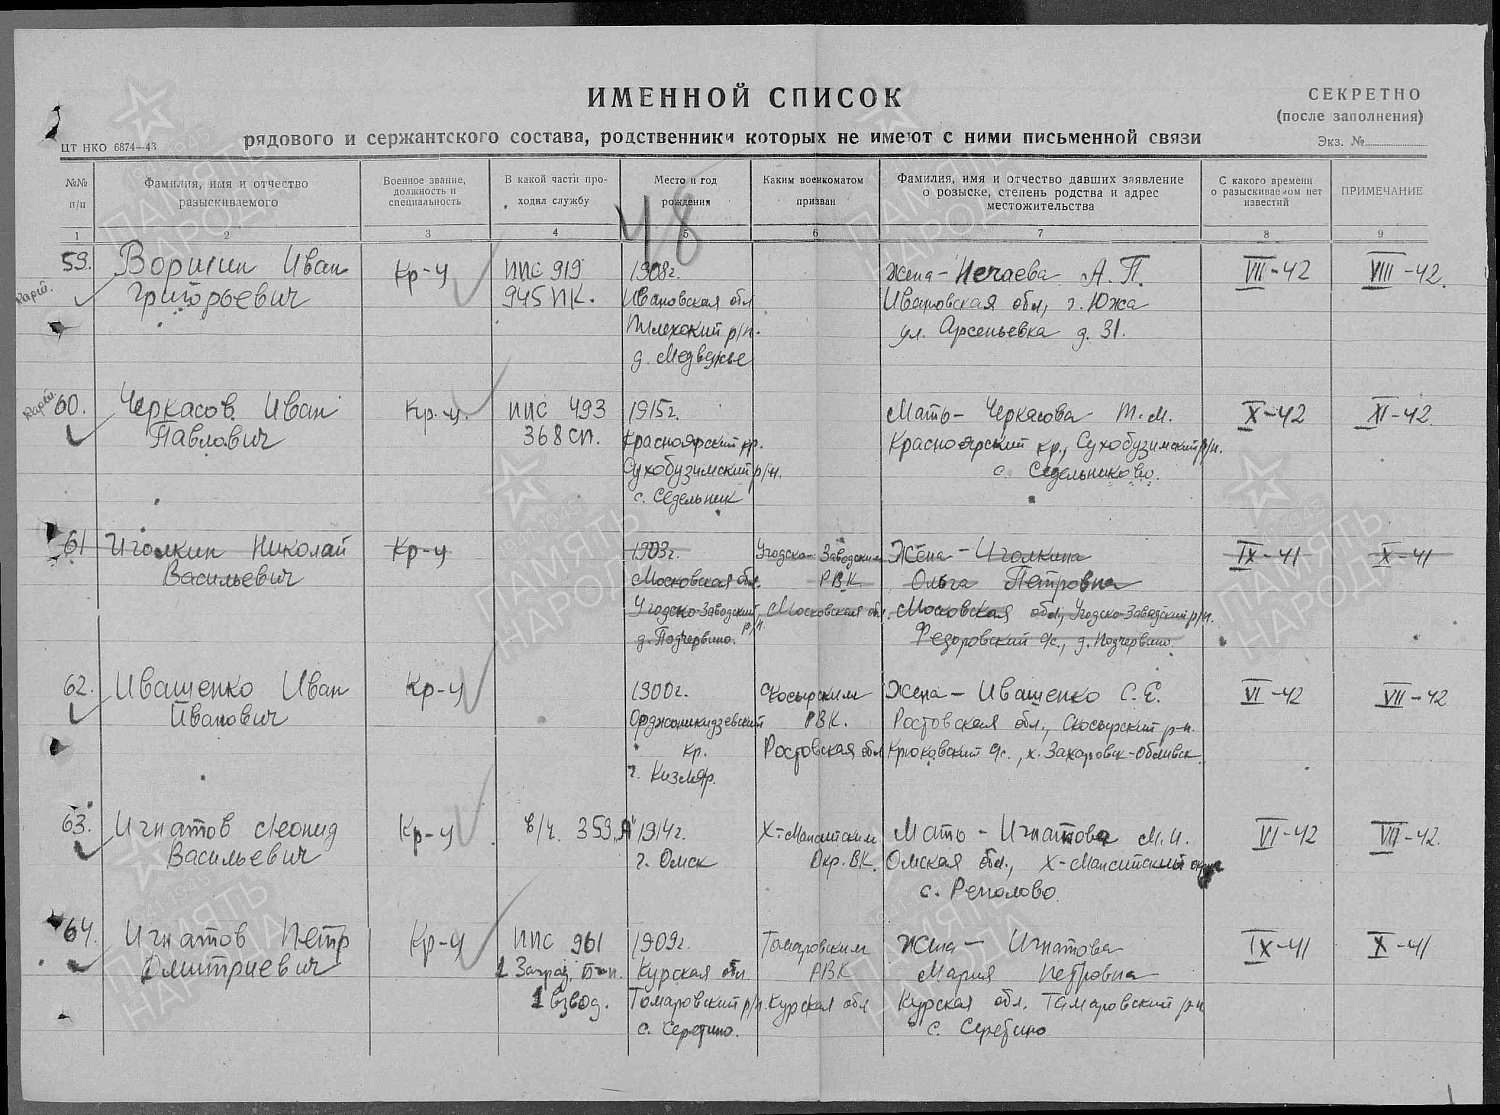 ИМЕННОЙ СПИСОК
рядового и сержантского состава, родственники которых не имеют с ними письменной связи
СЕКРЕТНО
(после заполнения)
Экз. №
ЦТ НКО 6874—43
№№ п/п
Фамилия, имя и отчество разыскиваемого
Военное звание, должность и специальность
В какой части проходил службу
Место и год рождения
Каким военкоматом призван
Фамилия, имя и отчество давших заявление о розыске, степень родства и адрес местожительства
С какого времени о разыскиваемом нет известий
ПРИМЕЧАНИЕ
1 2 3 4 5 6 7 8 9
48
59. Иван Кр-ц ППС 919 1908г. Жена - Нечаева А.П. VII-42 VIII-42.
Григорьевич 945 ПК. Ивановская обл Ивановская обл, г. Южа
р/н. ул. Арсеньевка д. 31.
д. Медвежье
60. Черкасов Иван Кр-ц. ППС 493 1915г. Мать - Черкасова М. X-42 XI-42.
Павлович 368 сп. Красноярский кр. Красноярский кр., Сухобузимский р/н.
Сухобузимский р/н. с. Седельниково.
с. Седельник
61 Иголкин Николай Кр-ц 1903г. Угодско-Заводским Жена - Иголкина IX-41 X-41
Васильевич Московская обл. РВК Ольга Петровна
Угодско-Заводский р/н. Московская обл. Московская обл., Угодско-Заводский р/н.
д. Подчервино. Федоровский с/с., д. Подчервино.
62. Иващенко Иван Кр-ц 1900г. Скосырским Жена - Иващенко С.Е. VI-42 VII-42
Иванович Орджоникидзевский РВК. Ростовская обл., Скосырский р-н.
кр. Ростовская обл Крюковский с/с., х.
г. Кизляр.
63. Игнатов Леонид Кр-ц в/ч. 359 "А" 1914г. Х-Мансийским Мать - Игнатова М.И. VI-42 VII-42.
Васильевич г. Омск Окр. ВК. Омская обл., Х-Мансийский округ
с. Реполово.
64. Игнатов Петр Кр-ц ППС 961 1909г. Томаровским Жена - Игнатова IX-41 X-41
Дмитриевич 1 Заград. Б-н. Курская обл. РВК Мария Петровна
1 взвод. Томаровский р/н. Курская обл Курская обл. Тамаровский р-н
с. Серетино. с. Серетино